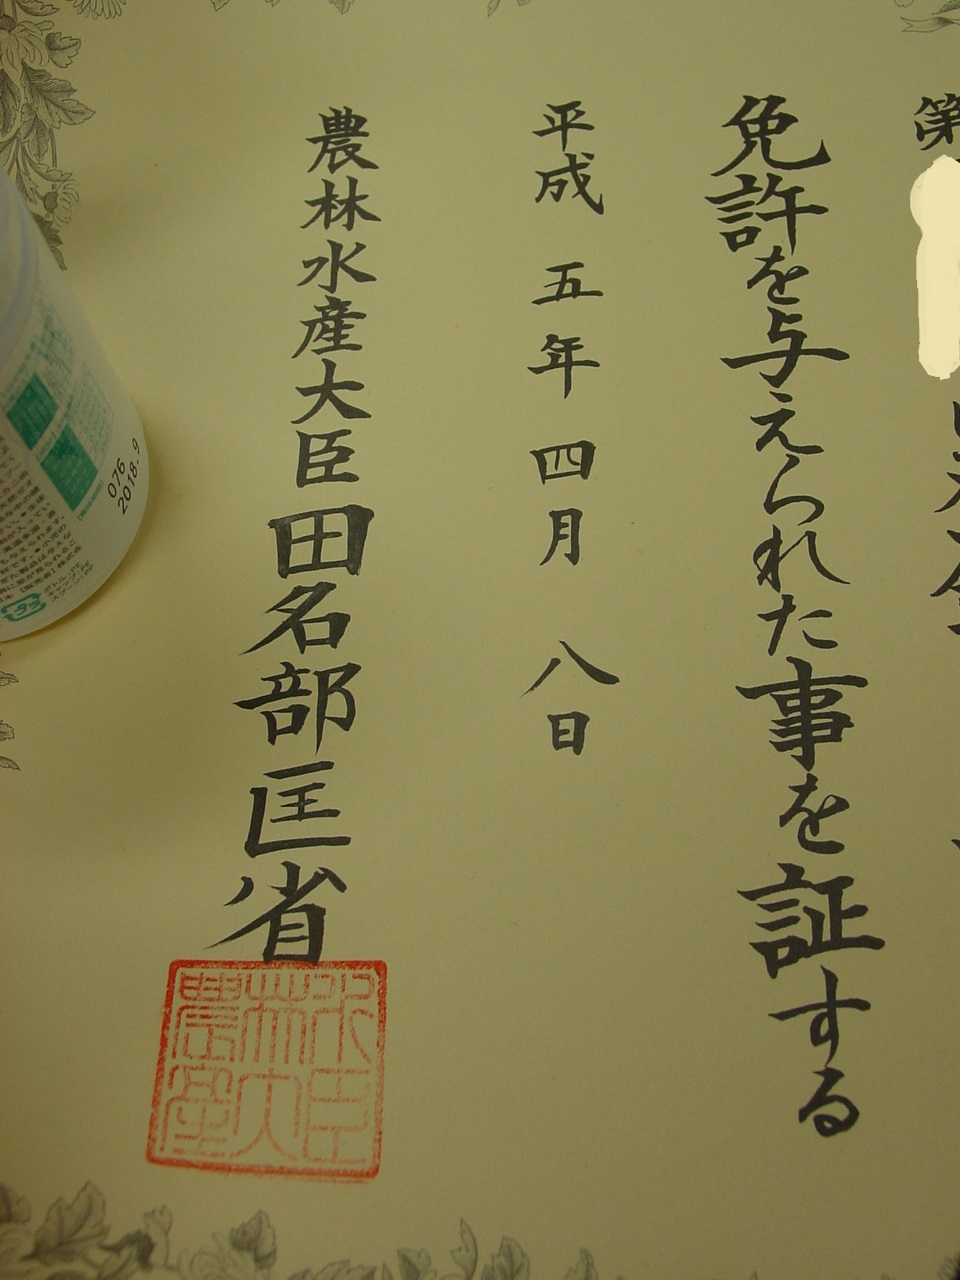 第
免許を与えられた事を証する
平成 五年 四月 八日
農林水産大臣 田名部匡省
農林水産大臣
076
2018.9